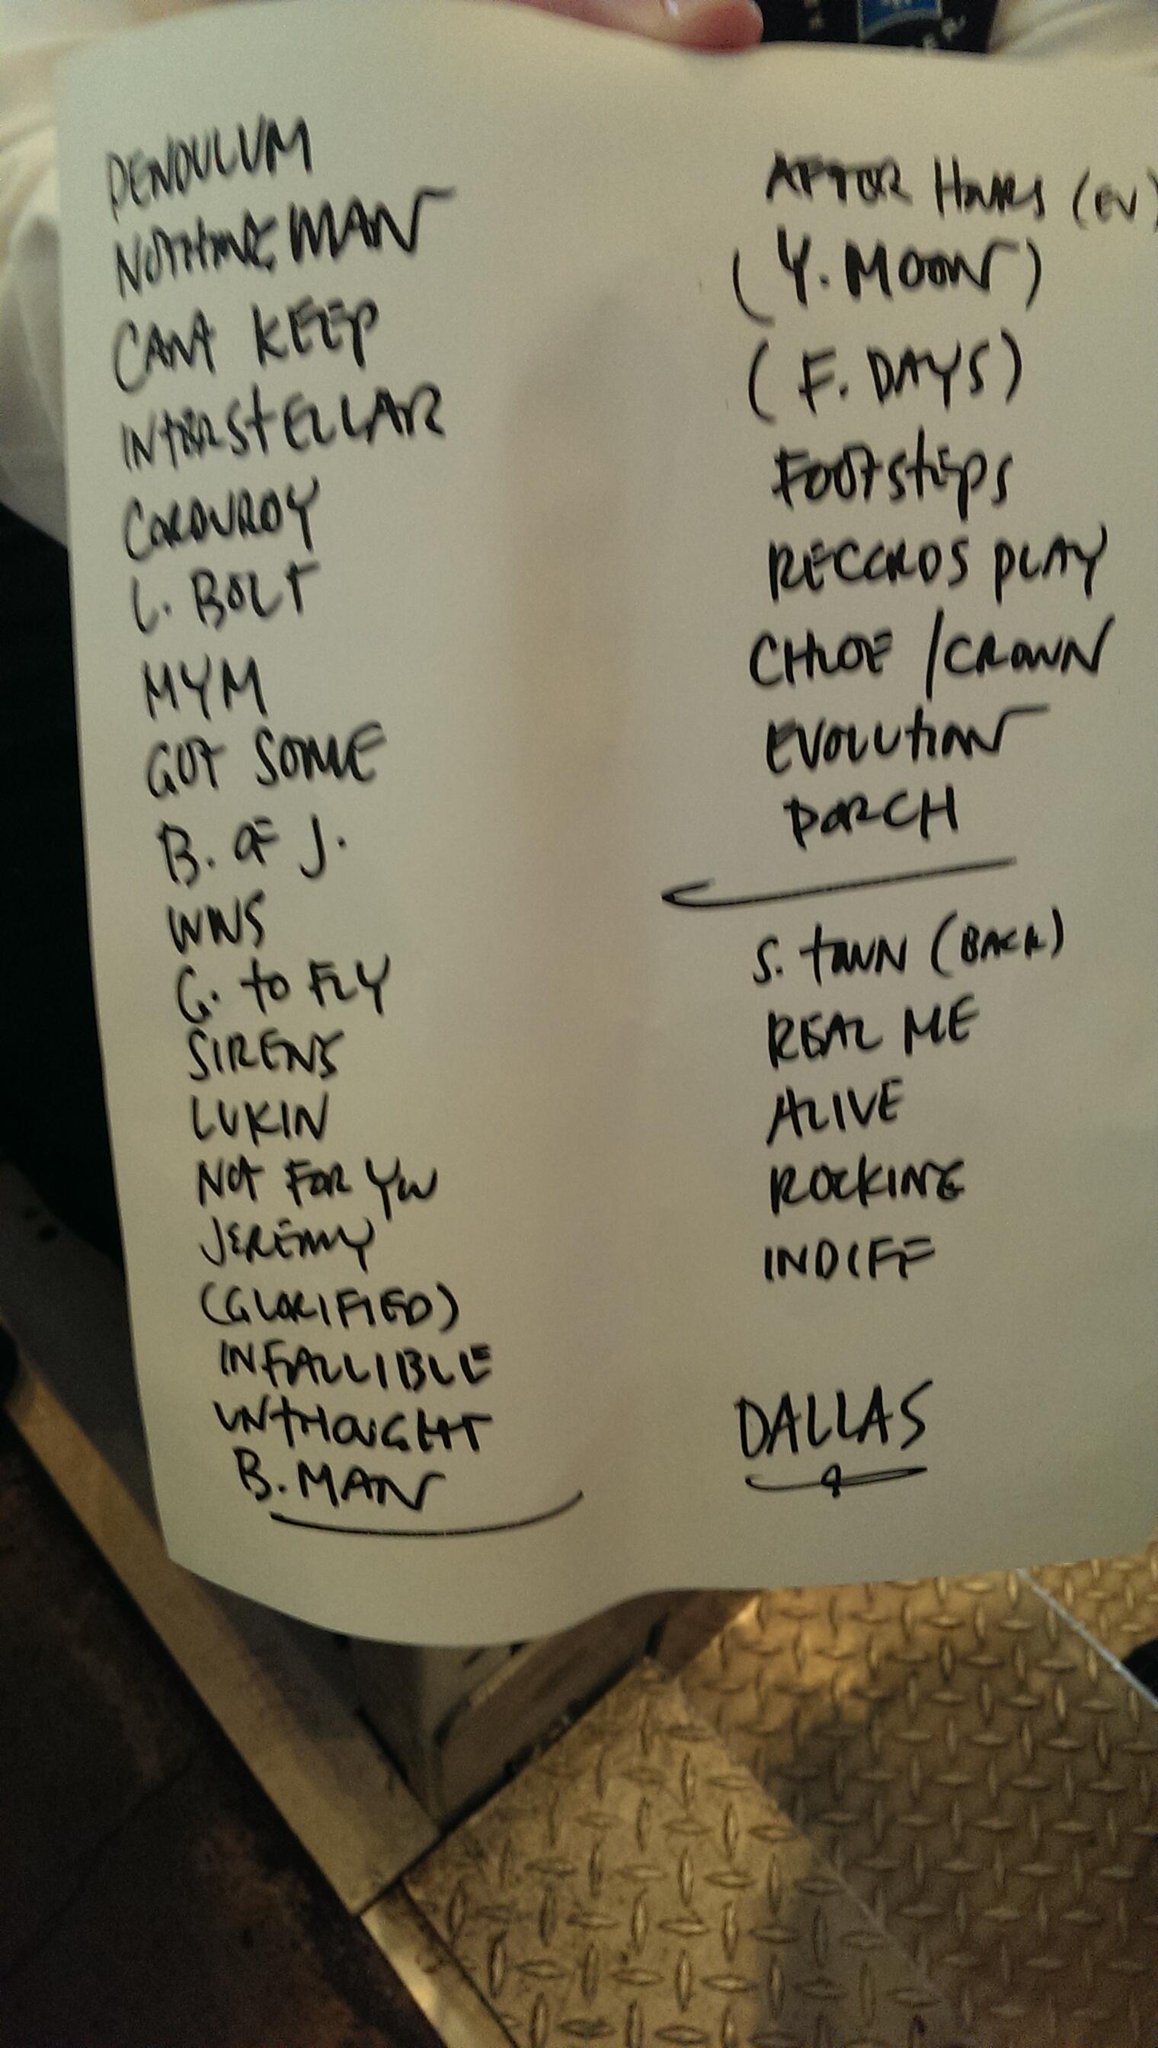 PENDULUM
NOTHINGMAN
CANT KEEP
INTERSTELLAR
CORDUROY
L. BOLT
MYM
GOT SOME
B. OF J.
WNS
G. TO FLY
SIRENS
LUKIN
NOT FOR YOU
JEREMY
(GLORIFIED)
INFALLIBLE
UNTHOUGHT
B. MAN
AFTER HOURS (EV)
(Y. MOON)
(F. DAYS)
FOOTSTEPS
RECORDS PLAY
CHLOE / CROWN
EVOLUTION
PORCH
S. TOWN (BACK)
REAL ME
ALIVE
ROCKING
INDIFF
DALLAS